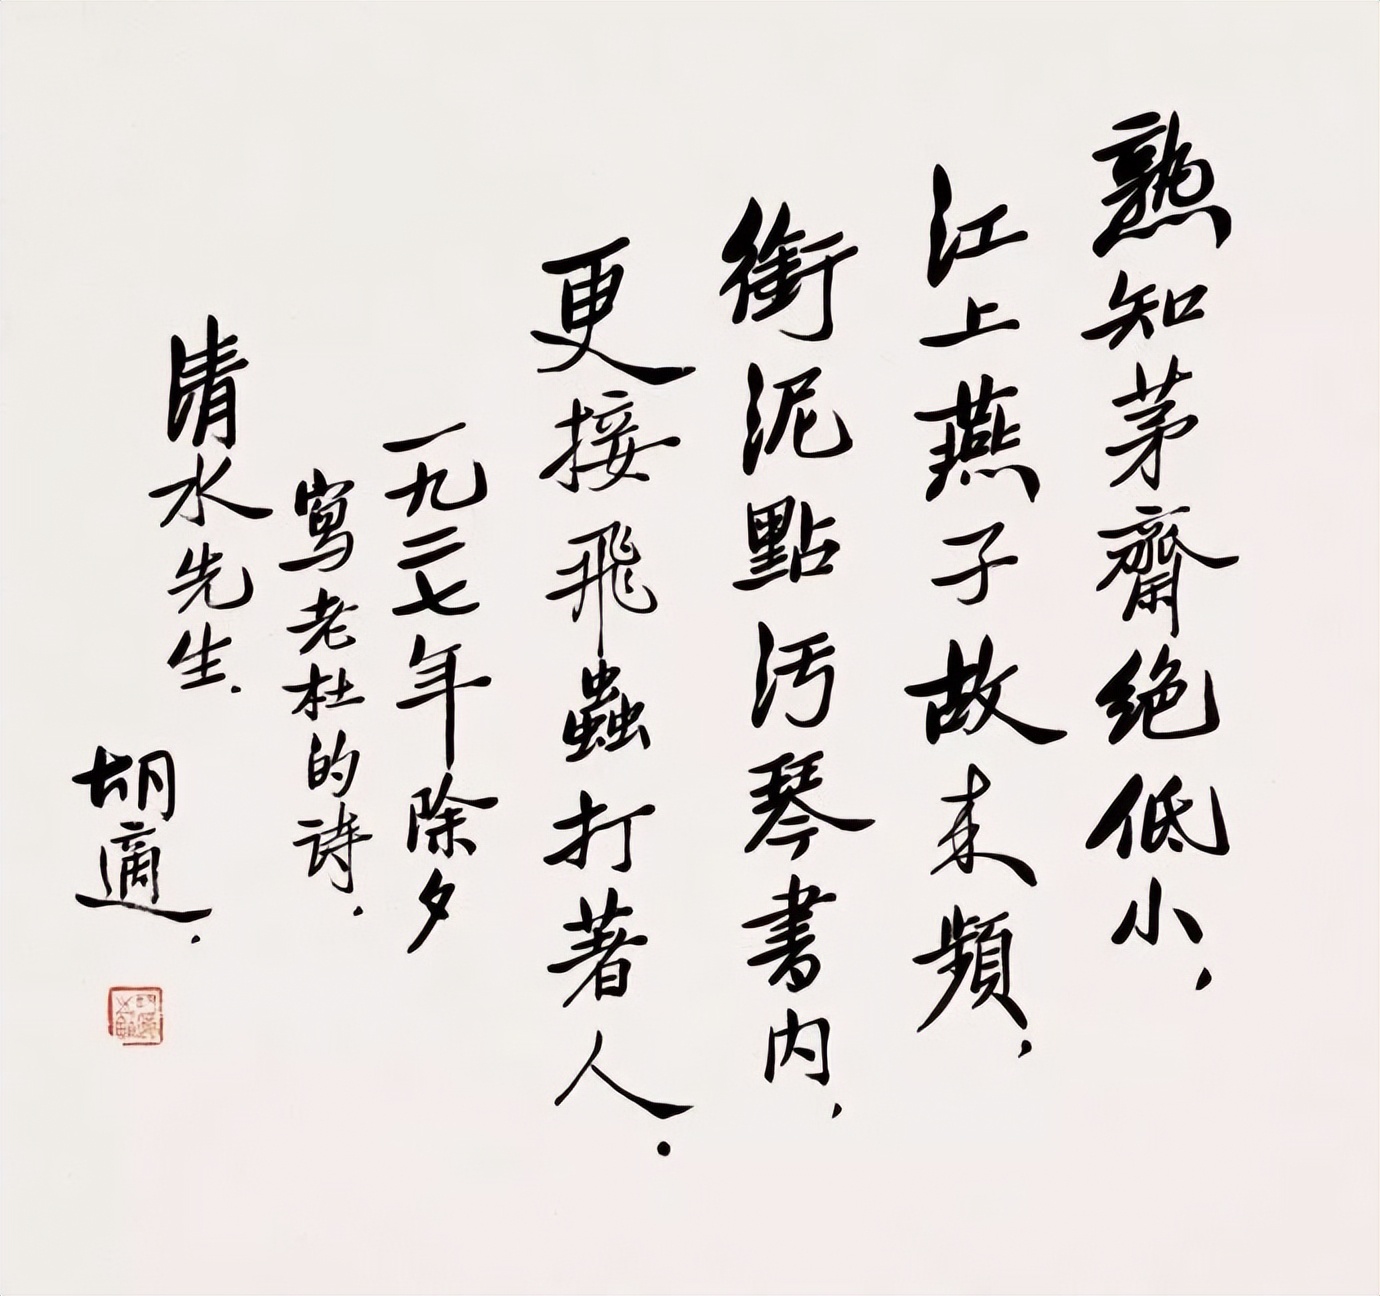 熟知茅齋絕低小，
江上燕子故來頻，
銜泥點汚琴書內，
更接飛蟲打著人．
一九二七年除夕
寫老杜的诗．
清水先生．
胡適．